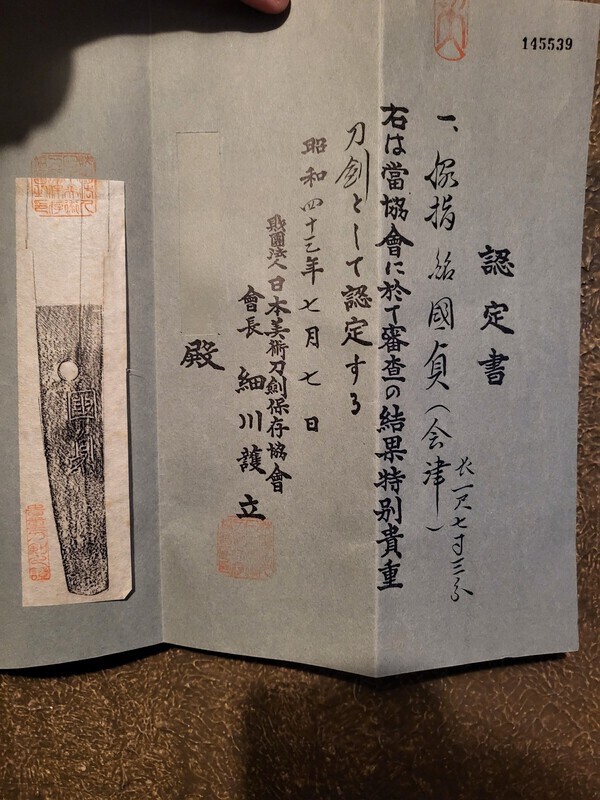 145539
認定書
一、脇指 銘 國貞（会津）
長一尺七寸三分
右は當協會に於て審査の結果特別貴重
刀剣として認定する
昭和四十三年七月七日
財團法人日本美術刀劍保存協會
會長 細川護立
殿
國貞